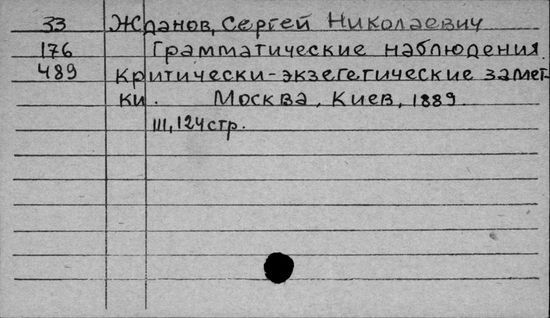 33 Жданов, Сергей Николаевич
176 Грамматические наблюдения.
489 Критически-экзегетические замет
ки. Москва, Киев, 1889.
III, 124 стр.